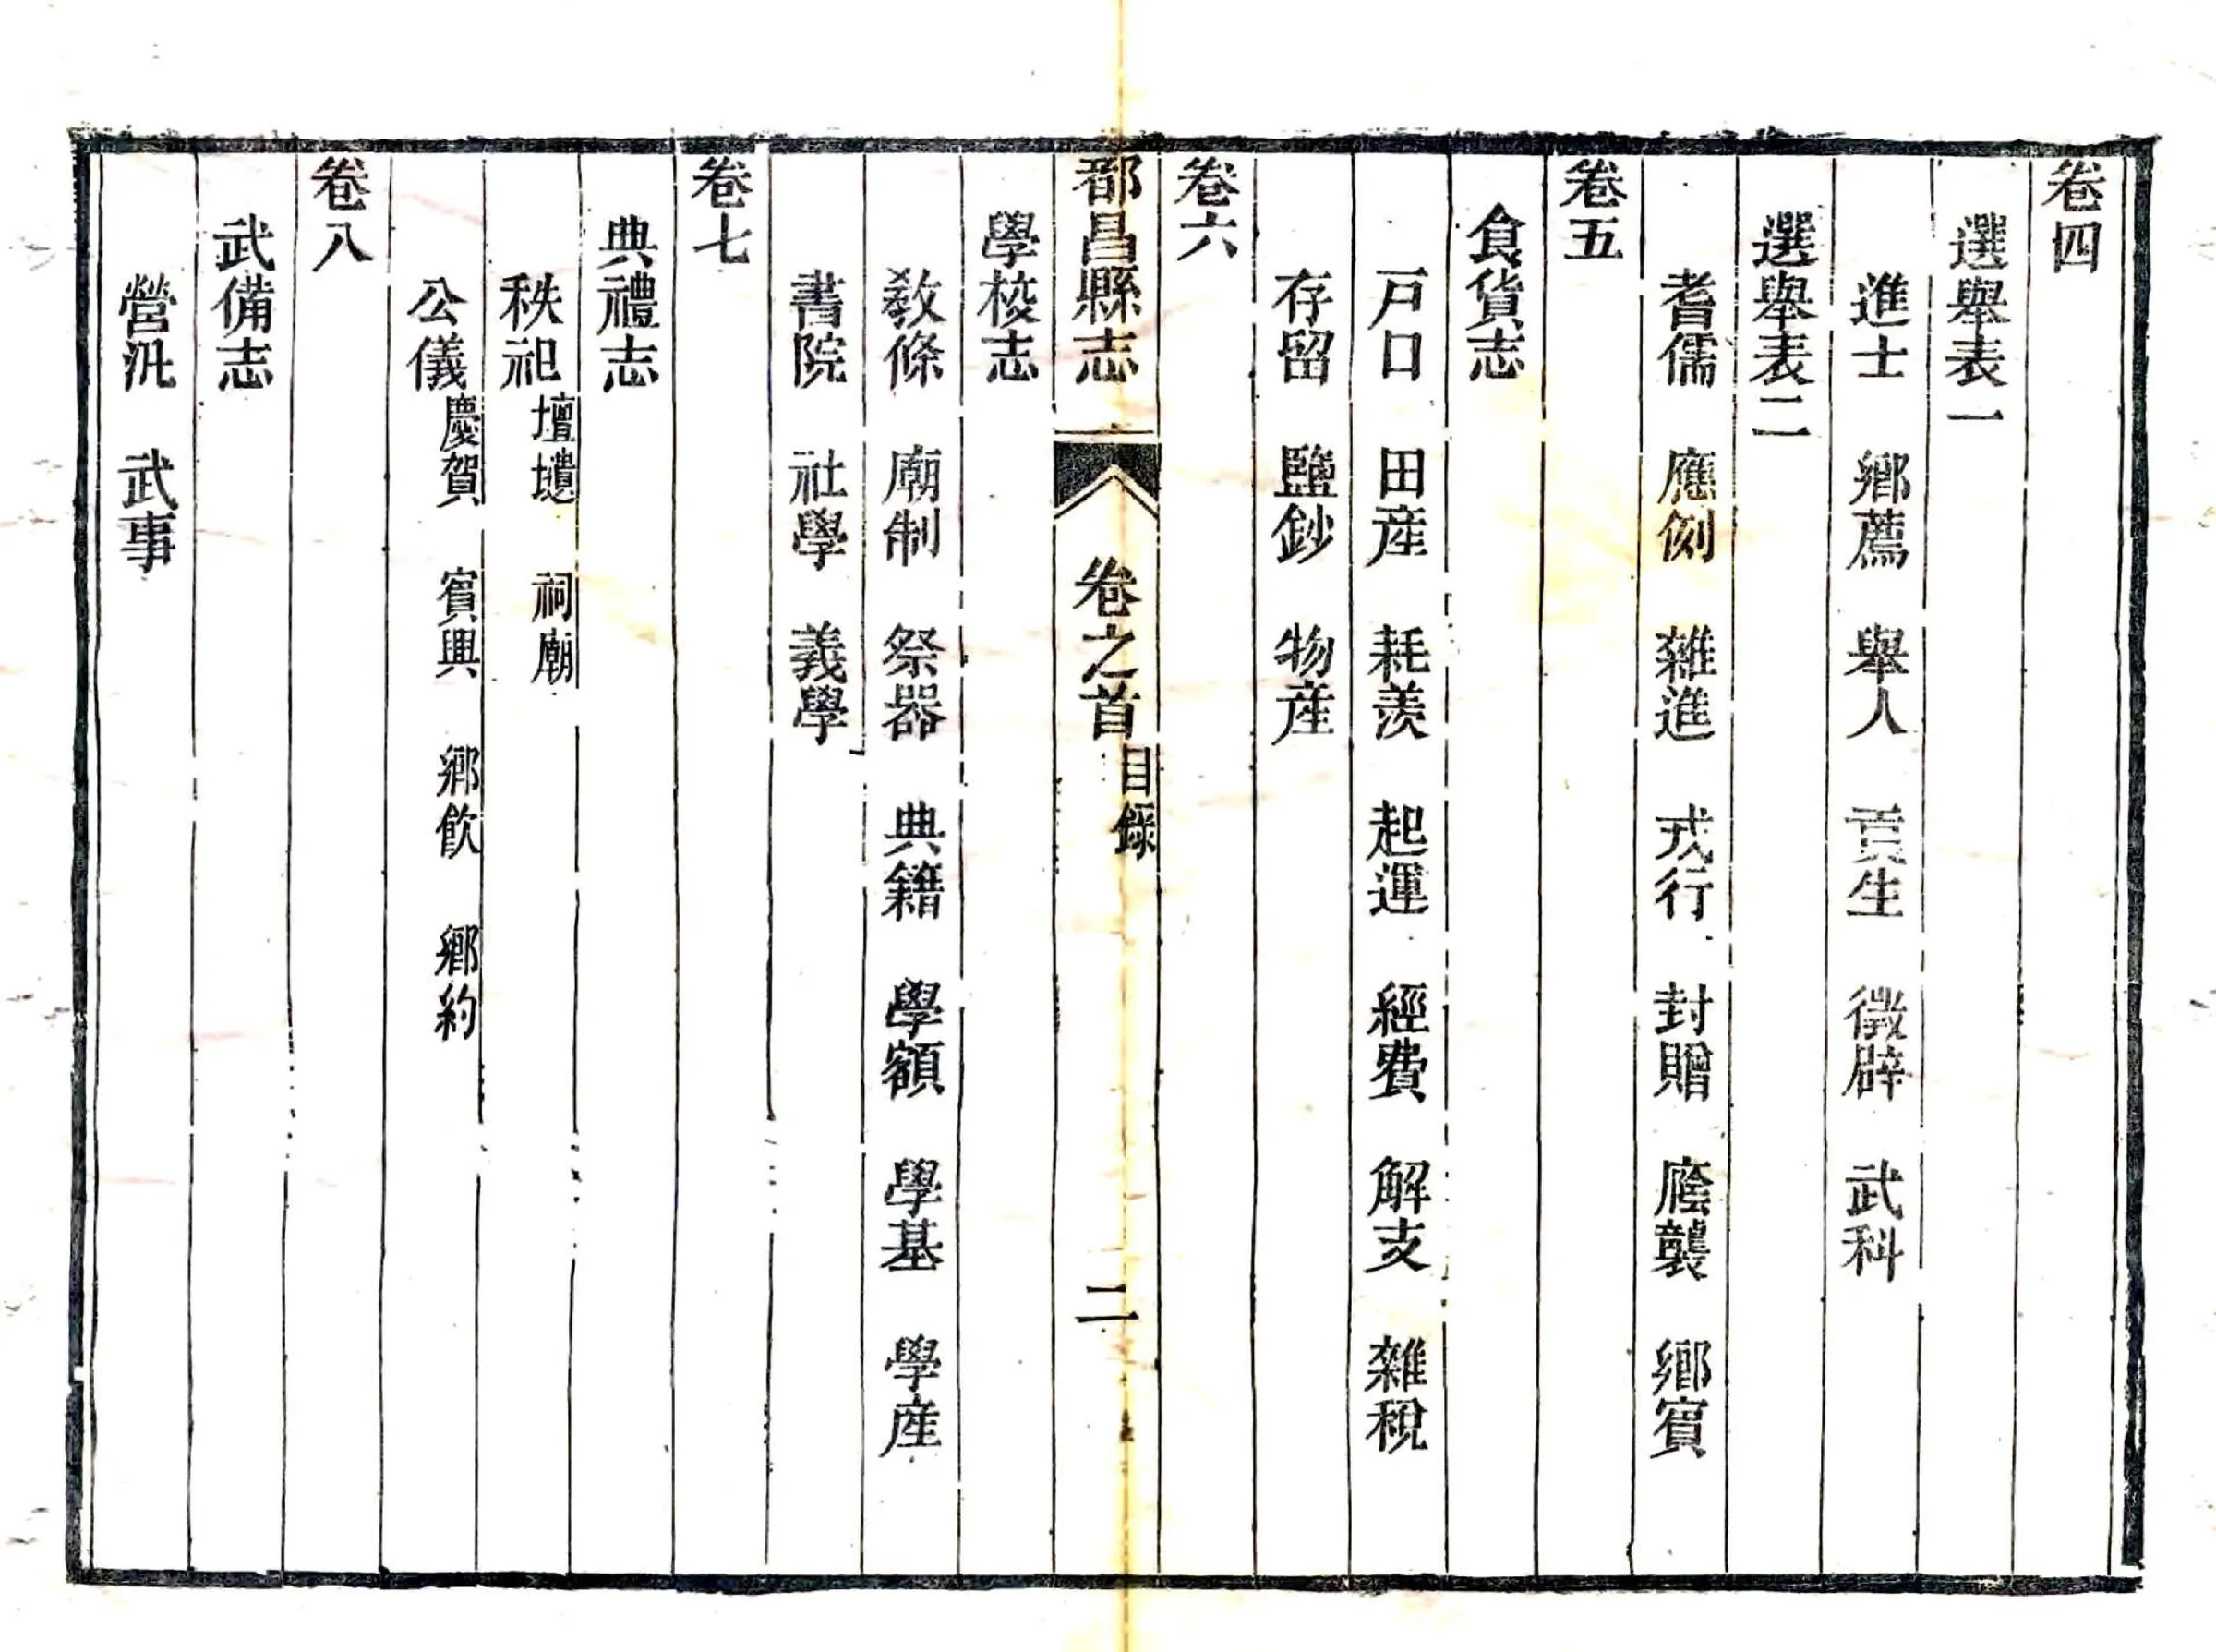 卷四
選舉表一
進士 鄉薦 舉人 貢生 徵辟 武科
選舉表二
耆儒 應例 雜進 戎行 封贈 廕襲 鄉賓
卷五
食貨志
戸口 田産 耗羨 起運 經費 解支 雜稅
存留 鹽鈔 物産
卷六
都昌縣志 卷之首 目錄 二
學校志
敎條 廟制 祭器 典籍 學額 學基 學産
書院 社學 義學
卷七
典禮志
秩祀 壇壝 祠廟
公儀 慶賀 賓興 鄉飲 鄉約
卷八
武備志
營汛 武事